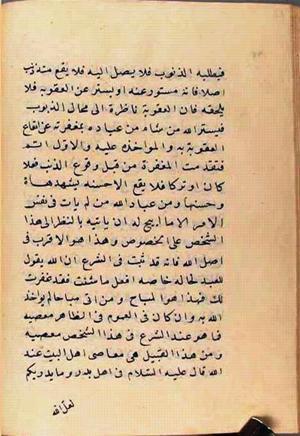 فيطلبه الذنوب فلا يصل اليه فلا يقع منه ذنب
اصلا فانه مستور عنه او يستر عن العقوبة فلا
يلحقه فان العقوبة ناظرة الى محال الذنوب
فيستر الله من شاء من عباده بمغفرته عن ايقاع
العقوبة به والمواخذة عليه والاول اتم
فتقدمت المغفرة من قبل وقوع الذنب فعلا
كان او تركا فلا يقع الاحسنه يشهدها
وحسنها ومن عباد الله من لم يات في نفس
الامر الا ما ابيح له ان ياتيه بالنظر الى هذا
الشخص على الخصوص وهذا هو الاقرب في
اهل الله فانه قد ثبت في الشرع ان الله يقول
للعبد لحالة خاصة افعل ما شئت فقد غفرت
لك فهذا هو المباح ومن اتى مباحا لم يواخذ
الله به وان كان في العموم في الظاهر معصية
فما هو عند الشرع في هذا الشخص معصية
ومن هذا القبيل هي معاصي اهل البيت عند
الله قال عليه السلام في اهل بدر وما يدريكم
لعل الله